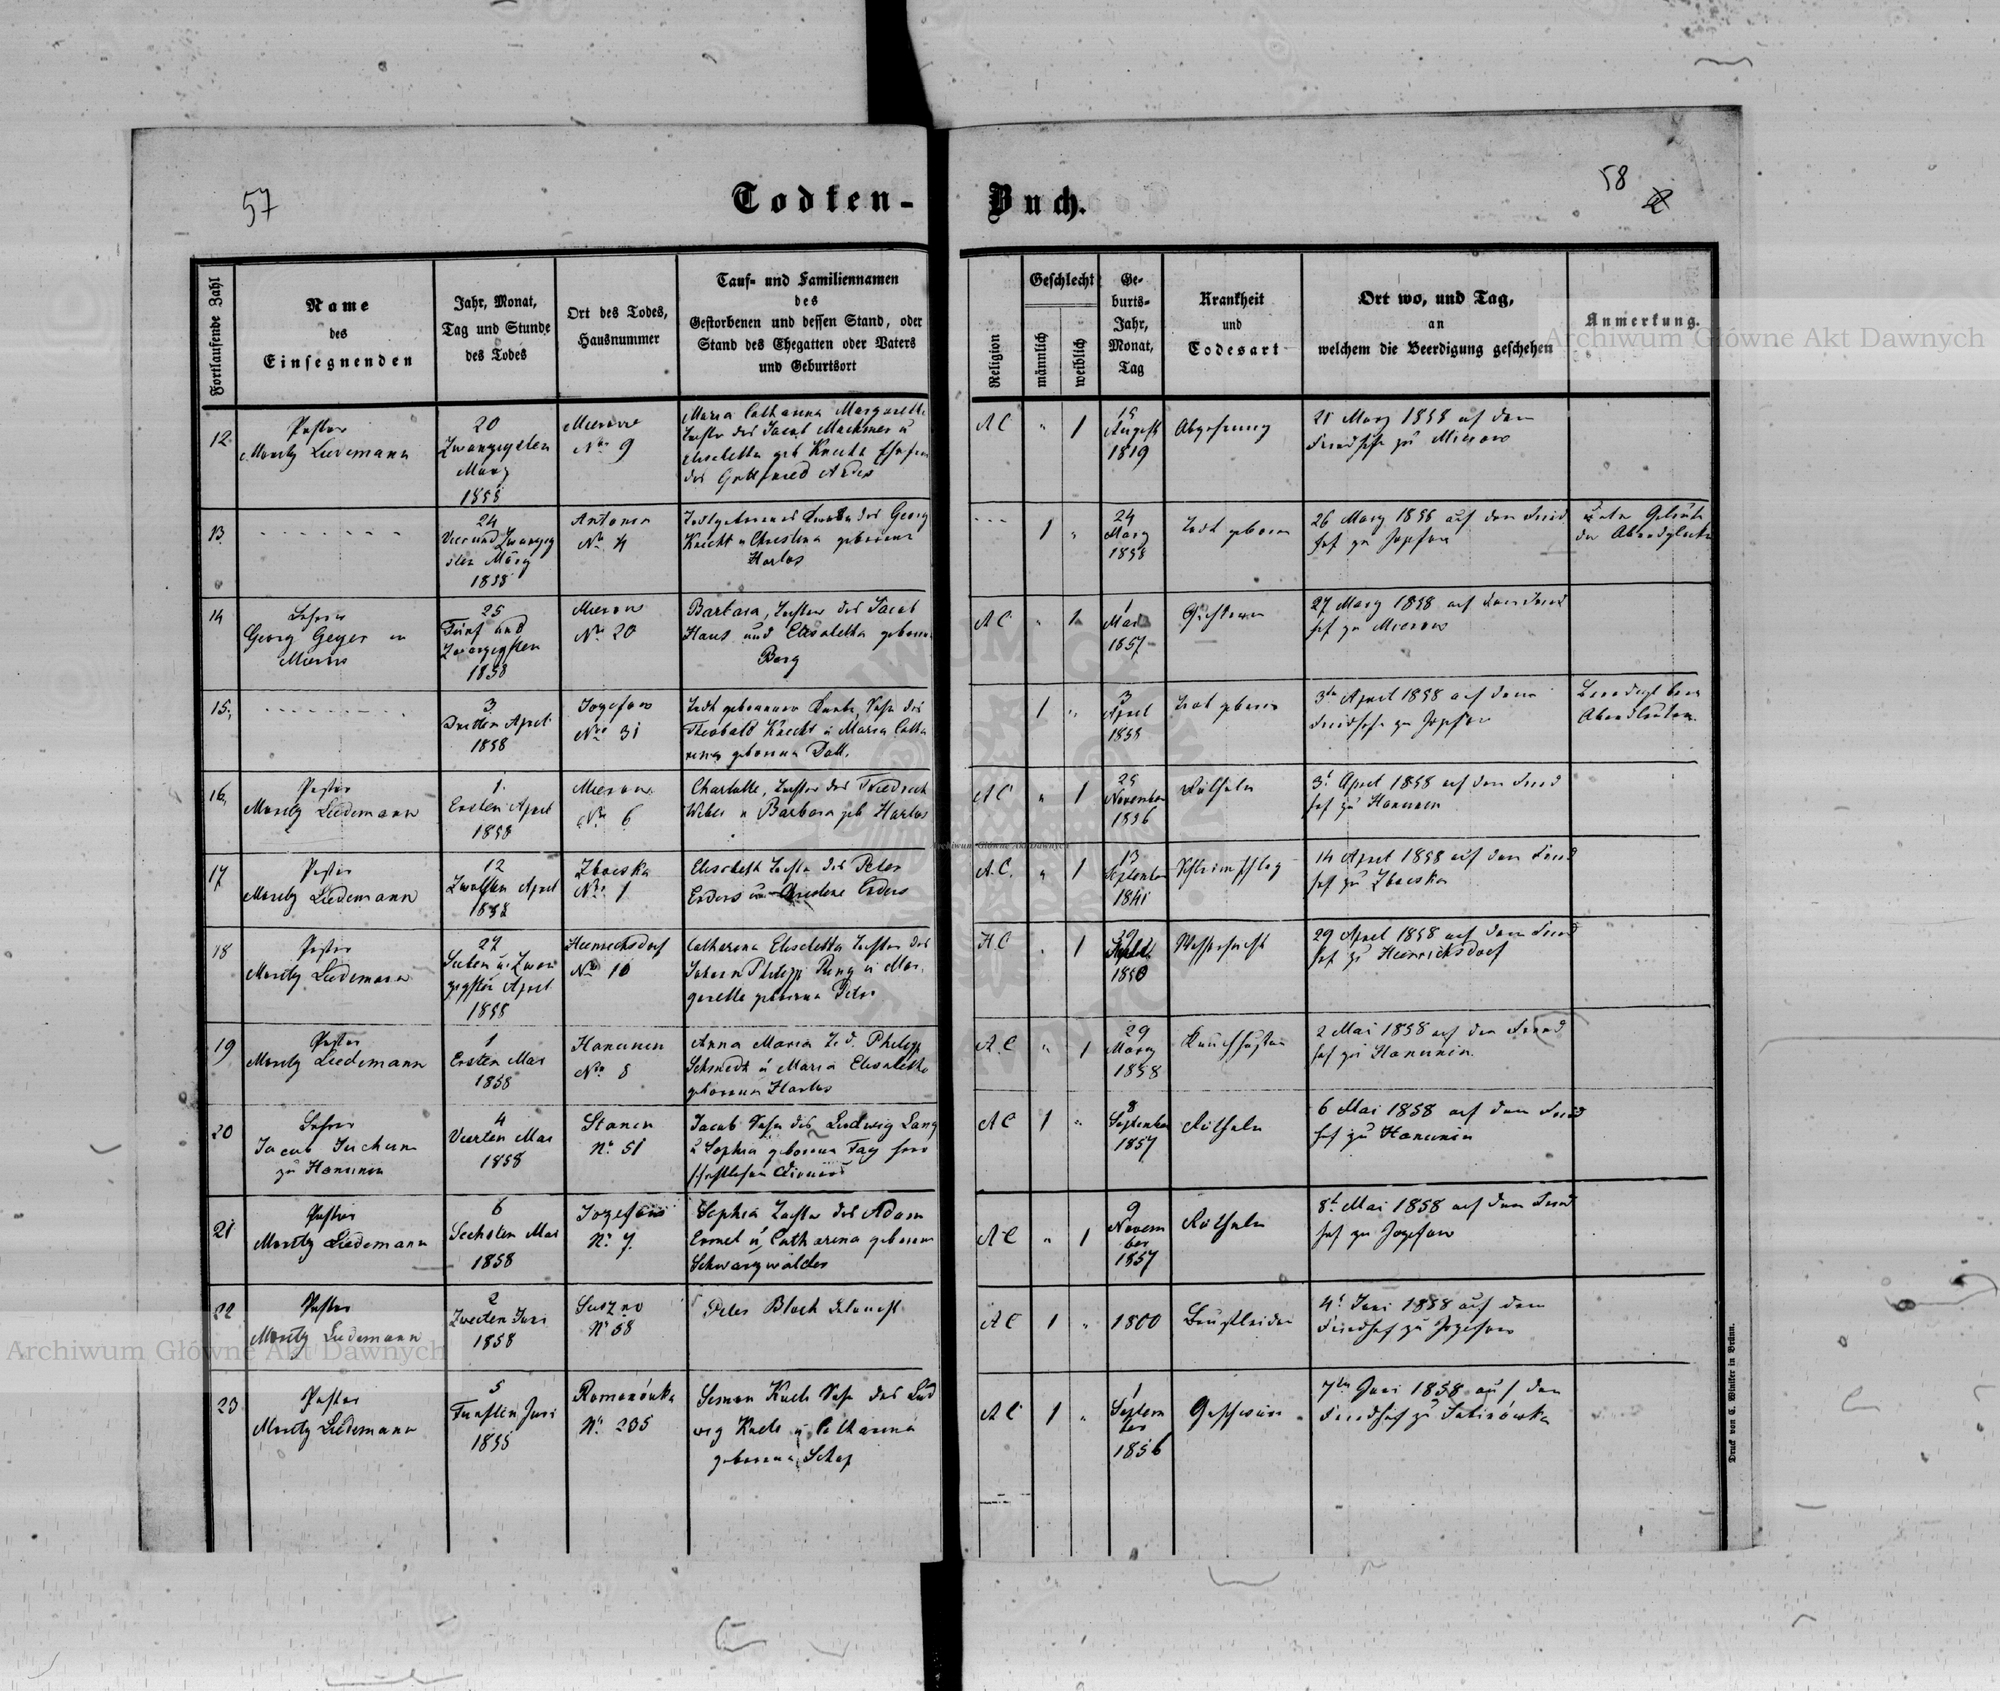 57
Todten-
Buch.
58
Fortlaufende Zahl
Name
des
Einsegnenden
Jahr, Monat,
Tag und Stunde
des Todes
Ort des Todes,
Hausnummer
Tauf- und Familiennamen
des
Gestorbenen und dessen Stand, oder
Stand des Ehegatten oder Vaters
und Geburtsort
Religion
Geschlecht
männlich
weiblich
Ge-
burts-
Jahr,
Monat,
Tag
Krankheit
und
Todesart
Ort wo, und Tag,
an
welchem die Beerdigung geschehen
Anmerkung.
12
Pastor
Moritz Liedemann
20
Zwanzigsten
März
1858
Mierow
No 9
Maria Catharina Margaretha
Tochter des Jacob Machmer u
Elisabetha geb Knecht
des Gottfried
AC
" 1
15
August
1819
Abzehrung
21 März 1858 auf dem
Friedhofe zu Mierow
13
24
Vier und Zwanzig
sten März
1858
Antonin
No 4
Todtgeborener Knabe des Georg
Knecht u Christina geborene
Harlos
1 "
24
März
1858
Todt geboren
26 März 1858 auf dem Fried
hof zu Jozefow
der Abendglocke
14
Lehrer
Georg Geyer in
Mierow
25
Fünf und
Zwanzigsten
1858
Mierow
No 20
Barbara, Tochter des Jacob
Haus und Elisabetha geborne
Berg
AC
" 1
1
Mai
1857
27 März 1858 auf dem Fried
hof zu Mierow
15,
3
Dritten April
1858
Jozefow
No 31
Todt geborener Knabe, Sohn des
Theobald Knecht u Maria Catha
rina geborene Doll.
1 "
3
April
1858
Todt geboren
3ten April 1858 auf dem
Friedhofe zu Jozefow
Beerdigt beim
Abendläuten
16,
Pastor
Moritz Liedemann
1
Ersten April
1858
Mierow
No 6
Charlotte, Tochter des Friedrich
Weber u Barbara geb Harlos
AC
" 1
25
November
1856
Rötheln
3t April 1858 auf dem Fried
hof zu Hanunin
17
Pastor
Moritz Liedemann
12
Zwölften April
1858
Zboiska
No 1
Elisabeth Tochter des Peter
Enders u Enders
A.C.
" 1
13
September
1841
14 April 1858 auf dem Fried
hof zu Zboiska
18
Pastor
Moritz Liedemann
27
Sieben u. Zwan
zigsten April
1858
Heinrichsdorf
No 10
Catharina Elisabetha Tochter des
Johann Philipp Ring u Mar
garetha geborene Peter
HC
" 1
29
Septbr.
1850
Wassersucht
29 April 1858 auf dem Fried
hof zu Heinrichsdorf
19
Pastor
Moritz Liedemann
1
Ersten Mai
1858
Hanunin
No 8
Anna Maria T. d. Philipp
Schmidt u Maria Elisabetha
geborene Harlos
A.C
" 1
29
März
1858
Keuchhusten
2 Mai 1858 auf dem Fried
hof zu Hanunin.
20
Lehrer
Jacob
zu Hanunin
4
Vierten Mai
1858
Stanin
No 51
Jacob Sohn des Ludwig Lang
u Sophia geborene Fay herr
schaftlichen Dieners
AC
1 "
8
September
1857
Rötheln
6 Mai 1858 auf dem Fried
hof zu Hanunin
21
Pastor
Moritz Liedemann
6
Sechsten Mai
1858
Jozefow
No 7.
Sophia Tochter des Adam
Ermel u Catharina geborene
Schwarzwälder
AC
" 1
9
Novem
ber
1857
Rötheln
8t Mai 1858 auf dem Fried
hof zu Jozefow
22
Pastor
Moritz Liedemann
2
Zweiten Juni
1858
Suszno
No 58
Peter Bloch
AC
1 "
1800
Brustleiden
4t Juni 1858 auf dem
Friedhof zu Jozefow
23
Pastor
Moritz Liedemann
5
Fünften Juni
1858
Romanówka
No 235
Simon Koch Sohn des Lud
wig Koch u Catharina
geborene
AC
1 "
1
Septem
ber
1856
7ten Juni 1858 auf dem
Friedhof zu Sabinówka
Druck von C. Winiker in Brünn.
Archiwum Główne Akt Dawnych
Archiwum Główne Akt Dawnych
Archiwum Główne Akt Dawnych